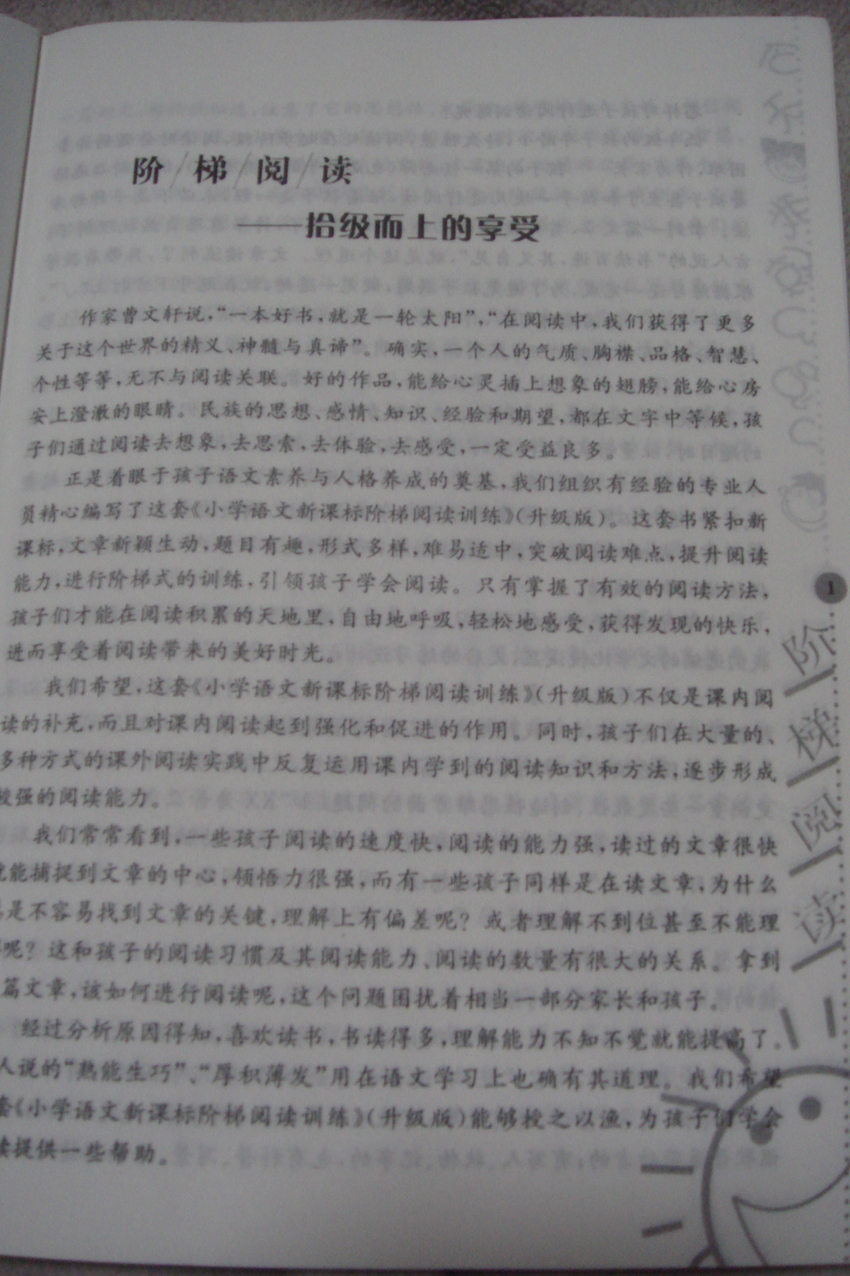 阶/梯/阅/读
——拾级而上的享受
作家曹文轩说，“一本好书，就是一轮太阳”，“在阅读中，我们获得了更多
关于这个世界的精义、神髓与真谛”。确实，一个人的气质、胸襟、品格、智慧、
个性等等，无不与阅读关联。好的作品，能给心灵插上想象的翅膀，能给心房
安上澄澈的眼睛。民族的思想、感情、知识、经验和期望，都在文字中等候，孩
子们通过阅读去想象，去思索，去体验，去感受，一定受益良多。
正是着眼于孩子语文素养与人格养成的奠基，我们组织有经验的专业人
员精心编写了这套《小学语文新课标阶梯阅读训练》（升级版）。这套书紧扣新
课标，文章新颖生动，题目有趣，形式多样，难易适中，突破阅读难点，提升阅读
能力，进行阶梯式的训练，引领孩子学会阅读。只有掌握了有效的阅读方法，
孩子们才能在阅读积累的天地里，自由地呼吸，轻松地感受，获得发现的快乐，
进而享受着阅读带来的美好时光。
我们希望，这套《小学语文新课标阶梯阅读训练》（升级版）不仅是课内阅
读的补充，而且对课内阅读起到强化和促进的作用。同时，孩子们在大量的、
多种方式的课外阅读实践中反复运用课内学到的阅读知识和方法，逐步形成
较强的阅读能力。
我们常常看到，一些孩子阅读的速度快，阅读的能力强，读过的文章很快
就能捕捉到文章的中心，领悟力很强，而有一些孩子同样是在读文章，为什么
是不容易找到文章的关键，理解上有偏差呢？或者理解不到位甚至不能理
呢？这和孩子的阅读习惯及其阅读能力、阅读的数量有很大的关系。拿到
篇文章，该如何进行阅读呢，这个问题困扰着相当一部分家长和孩子。
经过分析原因得知，喜欢读书，书读得多，理解能力不知不觉就能提高了。
人说的“熟能生巧”、“厚积薄发”用在语文学习上也确有其道理。我们希望
套《小学语文新课标阶梯阅读训练》（升级版）能够授之以渔，为孩子们学会
读提供一些帮助。
1
阶
梯
阅
读